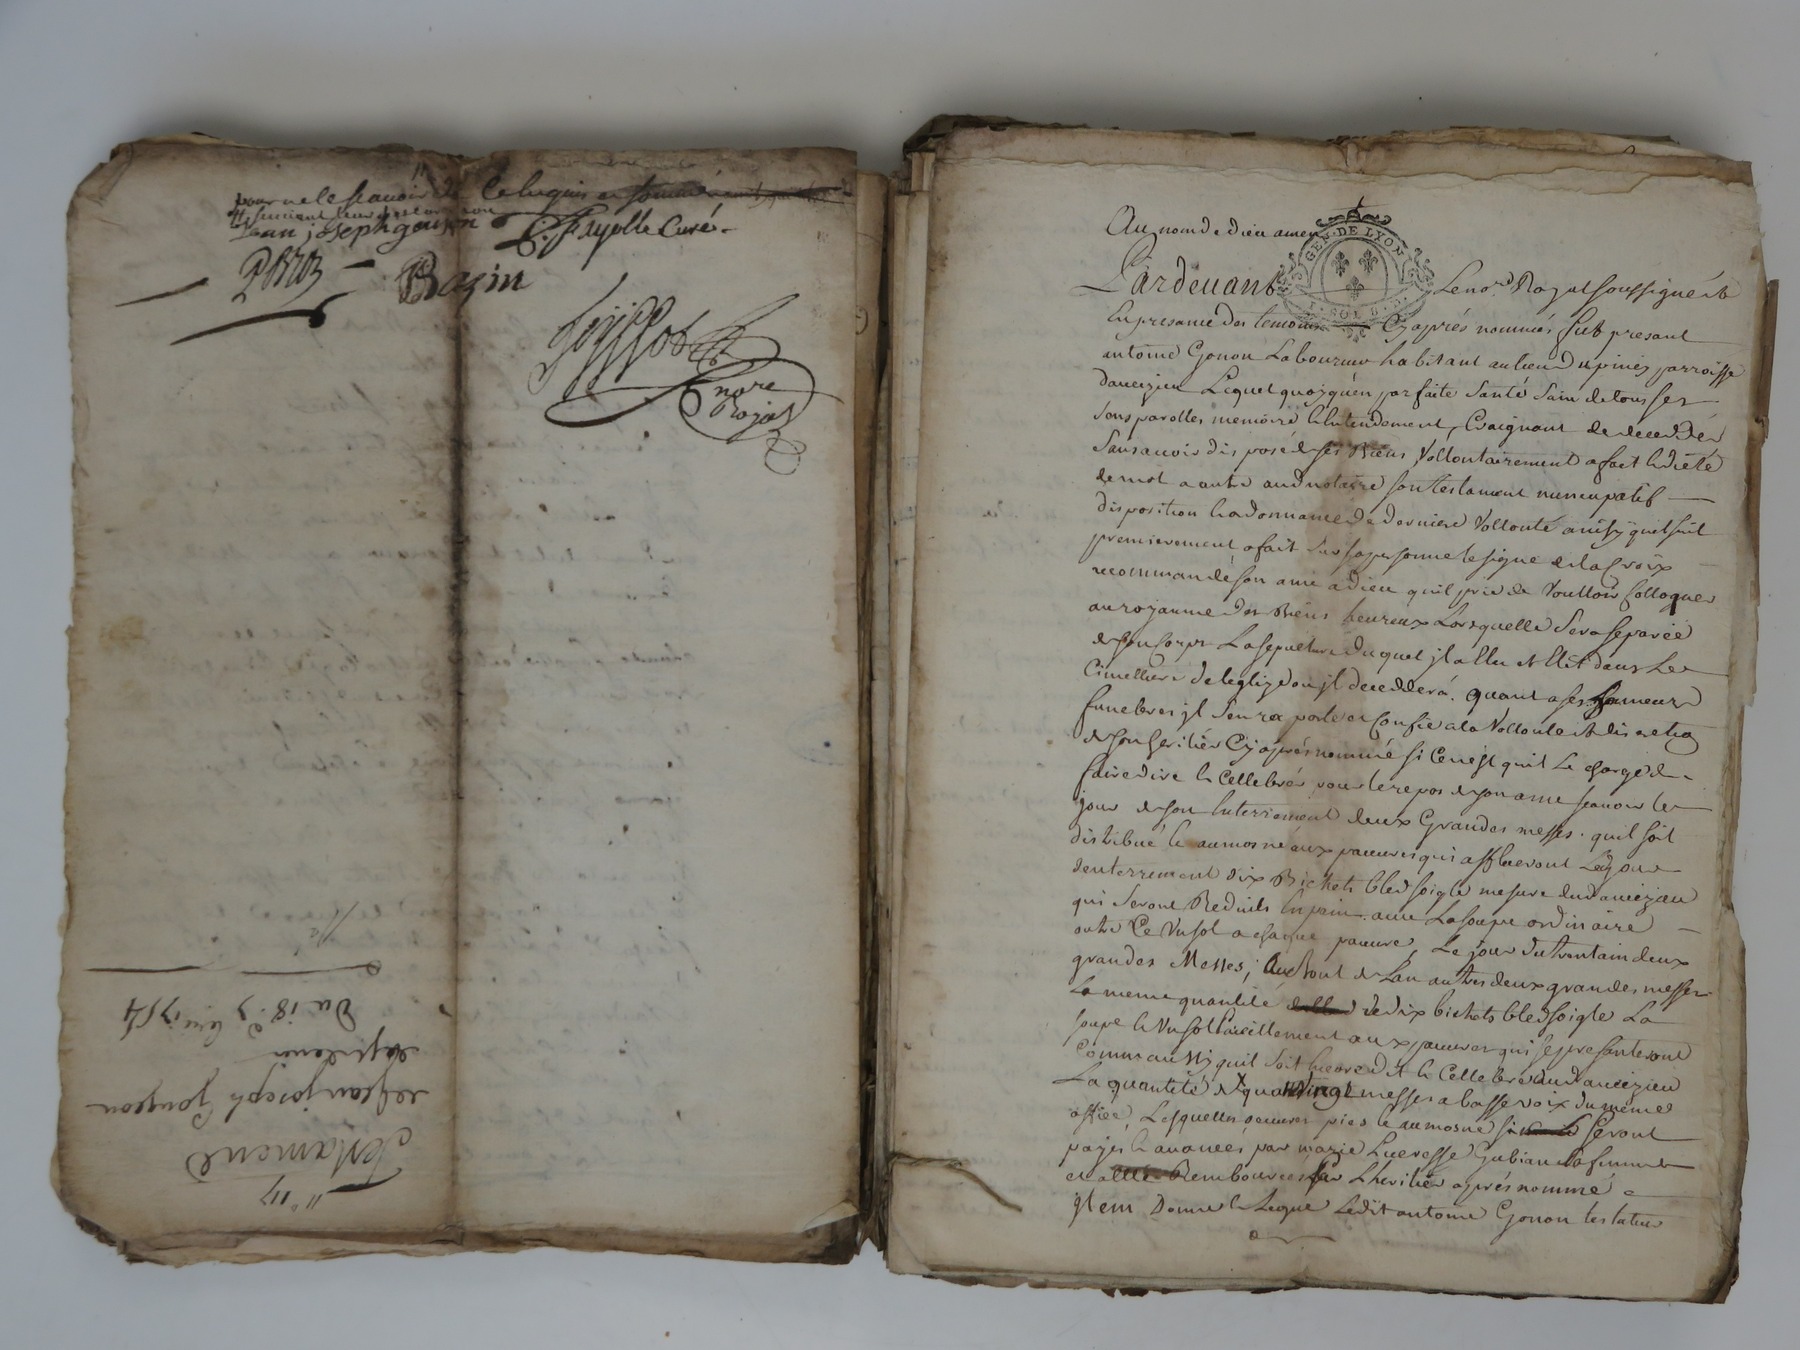 pour ne le scavoir de ce enquis et sommé
Jean joseph goujon
C. Fayolle Curé
Bazin
no.re
Royal
n.° 117
Testament
de Jean joseph Goujon
Du 18.e 1754
Au nom de dieu amen
GEN. DE LYON
Pardevant Le no.re Royal soussigné et
En presance des temoins Cy aprés nommés fut presant
antoine Gonon Laboureur habitant au lieu Dupinéy parroisse
danceizieu Lequel quoyqu'en parfaite Santé Sain de tous ses
Sens parolles memoire et Entendement, Craignant de decedder
Sans avoir disposé de ses Biens Vollontairement a fait et dicté
de mot a autre aud notaire son testament nuncupatif
disposition et ordonnance de derniere Vollonté ainsy quel suit
premierement a fait sur sa personne le signe de la Croix
recommandé son ame a Dieu qu'il prie de Voulloir Colloquer
au royaume des Biens heureux Lors quelle Sera separée
de son Corps La sepulture du quel jl a Elu et Elit dans Le
Cimettiere de leglize ou jl deceddera. quant a ses honneurs
funebres jl s'en raporte et Confie a la Vollonté et discretion
de son heritier Cy aprés nommé si Ce n'est quil Le charge de
faire dire et Cellebrer pour le repos de son ame scavoir le
jour de son Enterrement deux Grandes messes. quil soit
distribué et aumosné aux pauvres qui afflueront Le jour
denterrement dix Bichets bled soigle mesure dud anceizieu
qui Seront Reduits En pain avec La soupe ordinaire
outre Ce Un sol a chaque pauvre, Le jour du trantain deux
grandes Messes; Au bout de L'an autres deux grandes messes
La meme quantité de dix bichets bled soigle La
soupe et Un sol Pareillement aux pauvres qui se presanteront
Comme aussy quil soit Encore dit et Cellebré aud anceizieu
La quantité de quatre Vingt messes a basse voix du méme
office, Lesquelles oeuvres pies et aumosne Seront
payés et avancés par marie Lucresse Gubian sa femme
et a Elle Rembourcés par L'heritier aprés nommé
jtem Donne et Legue Ledit antoine Gonon testateur